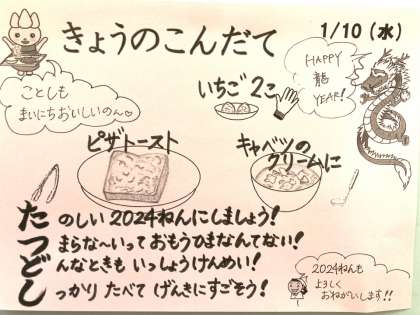 きょうのこんだて
1/10(水)
ことしも
まいにちおいしいのん♡
いちご2こ
HAPPY
龍
YEAR!
ピザトースト
キャベツの
クリームに
たのしい2024ねんにしましょう!
つまらな〜いっておもうひまなんてない!
どんなときもいっしょうけんめい!
しっかりたべてげんきにすごそう!
2024ねんも
よろしく
おねがいします!!